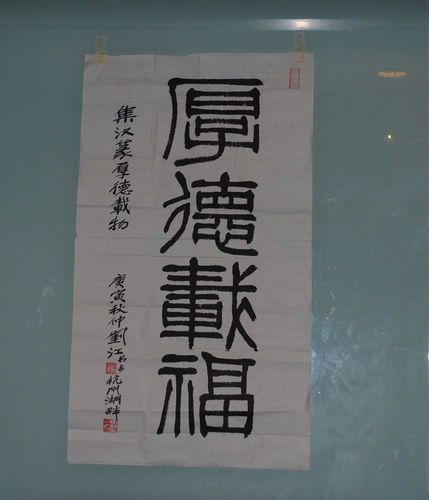 厚德載福
集汉篆厚德載物
庚寅秋仲劉江书于杭州湖畔